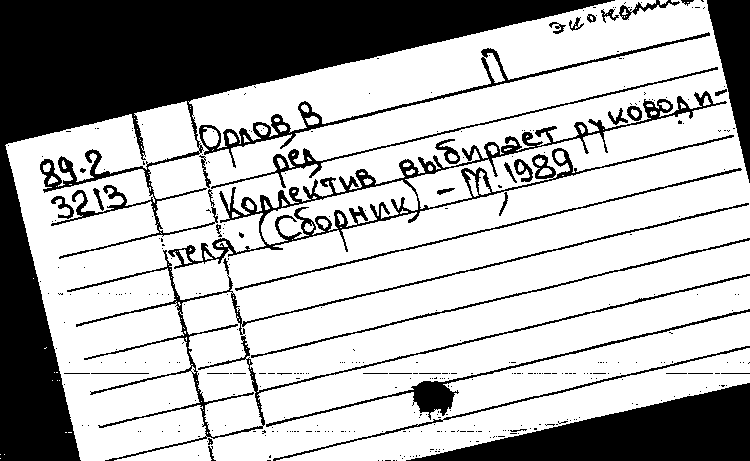 П
89.2
3213
Орлов, В
ред
Коллектив выбирает руководи-
теля: (Сборник). - М., 1989.